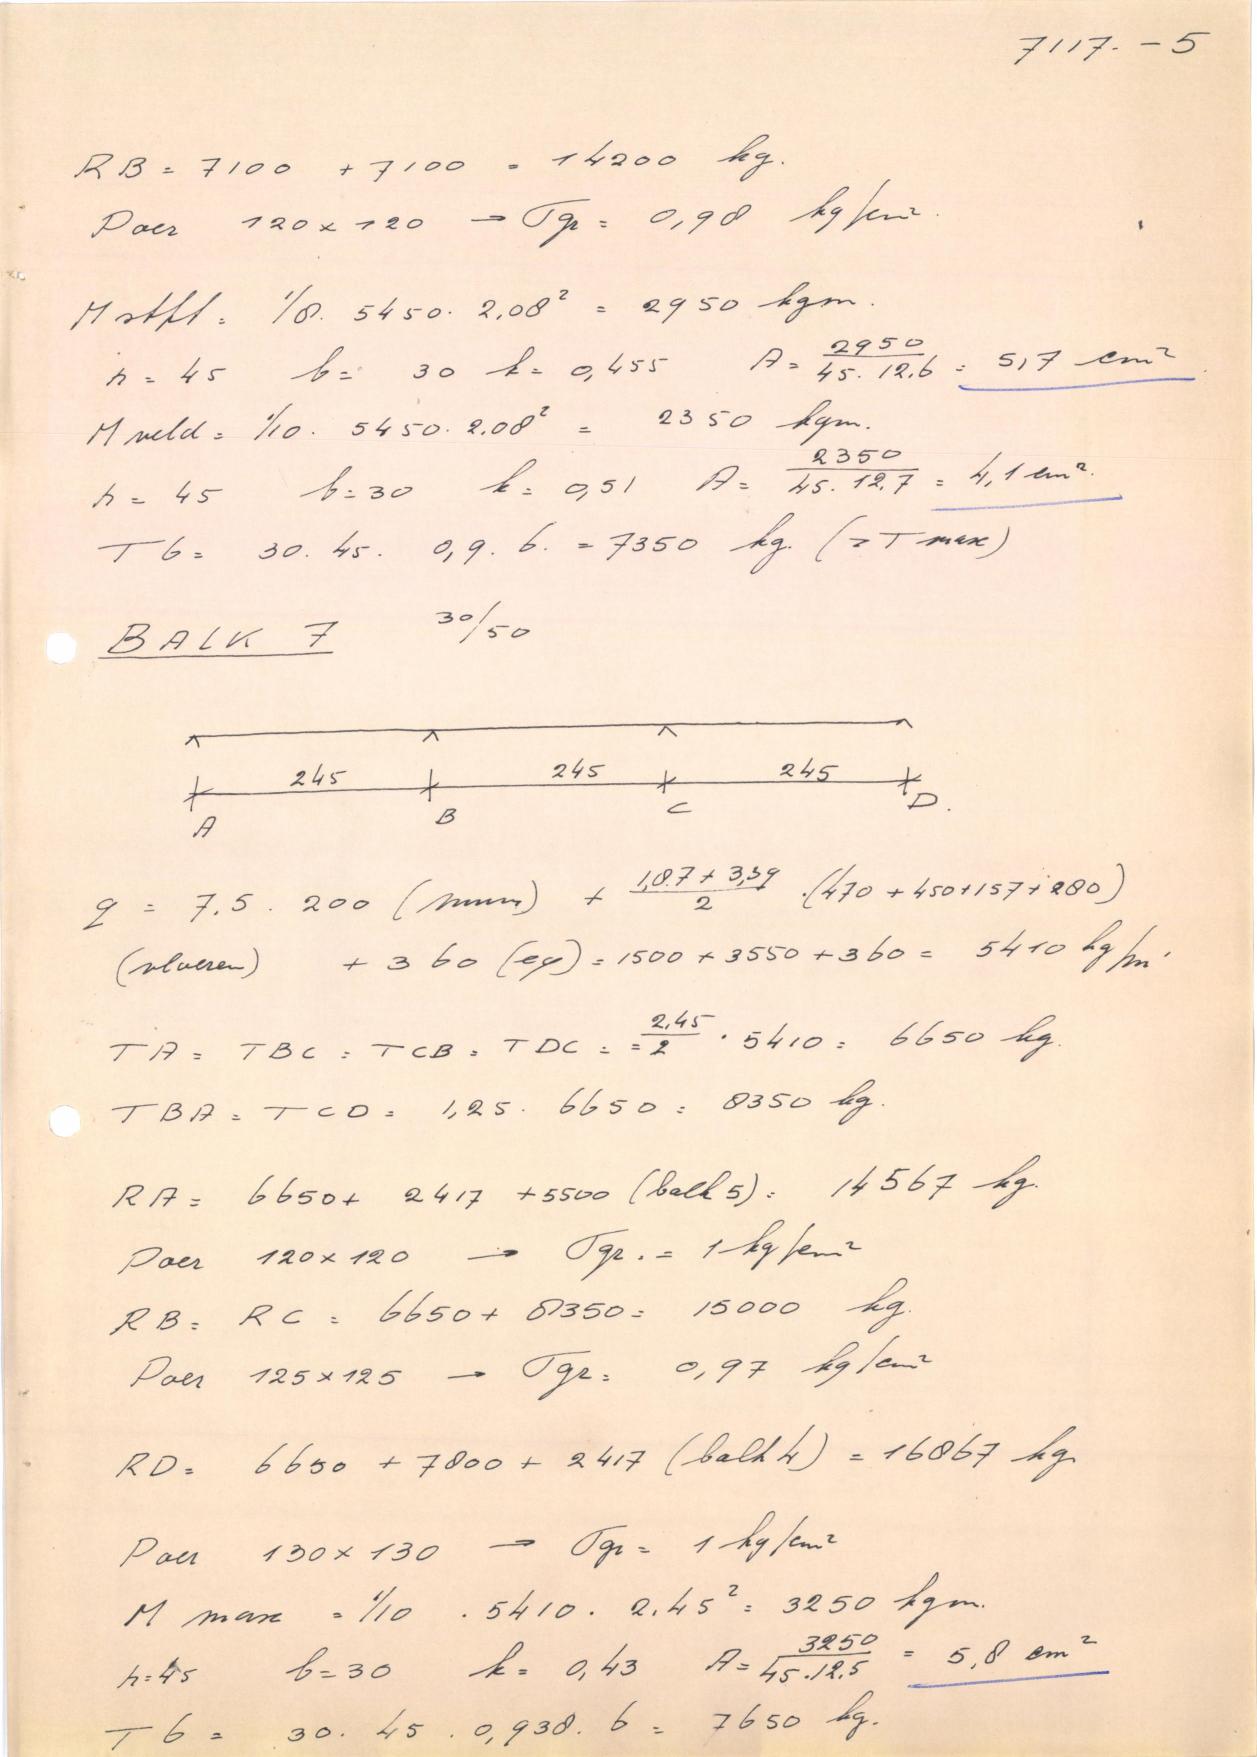 7117. - 5
RB = 7100 + 7100 = 14200 kg.
Poer 120 x 120 → σgr = 0,98 kg/cm²
M stpt. = 1/8. 5450. 2,08² = 2950 kgm.
h = 45 b = 30 k = 0,455 A = 2950 / 45. 12,6 = 5,7 cm²
M veld = 1/10. 5450. 2.08² = 2350 kgm.
h = 45 b = 30 k = 0,51 A = 2350 / 45. 12,7 = 4,1 cm².
T6 = 30. 45. 0,9. 6. = 7350 kg. (> T max)
BALK 7 30/50
245 245 245
A B C D.
q = 7,5. 200 (muur) + 1,87 + 3,39 / 2 .(470 + 450 + 157 + 280)
(vloeren) + 360 (eg) = 1500 + 3550 + 360 = 5410 kg/m'
TA = TBC = TCB = TDC = = 2,45 / 2 . 5410 = 6650 kg.
TBA = TCD = 1,25. 6650 = 8350 kg.
RA = 6650 + 2417 + 5500 (balk 5) = 14567 kg.
Poer 120 x 120 → σgr. = 1 kg/cm²
RB = RC = 6650 + 8350 = 15000 kg.
Poer 125 x 125 → σgr = 0,97 kg/cm²
RD = 6650 + 7800 + 2417 (balk 4) = 16867 kg
Poer 130 x 130 → σgr = 1 kg/cm²
M max = 1/10 . 5410. 2.45² = 3250 kgm.
h = 45 b = 30 k = 0,43 A = 3250 / 45.12,5 = 5,8 cm²
T6 = 30. 45. 0,938. 6 = 7650 kg.